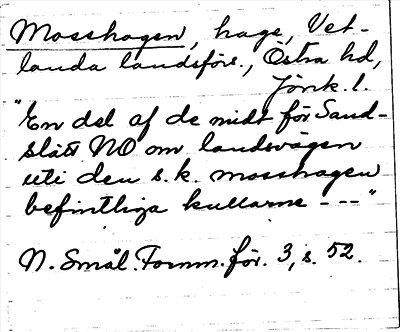 Mosshagen, hage, Vet-
landa landsförs., Östra hd,
Jönk. l.
"En del af de midt för Sand-
slätt NO om landsvägen
uti den s.k. mosshagen
befintliga kullarne ---"
N. Smål. Fornm. för. 3, s. 52.